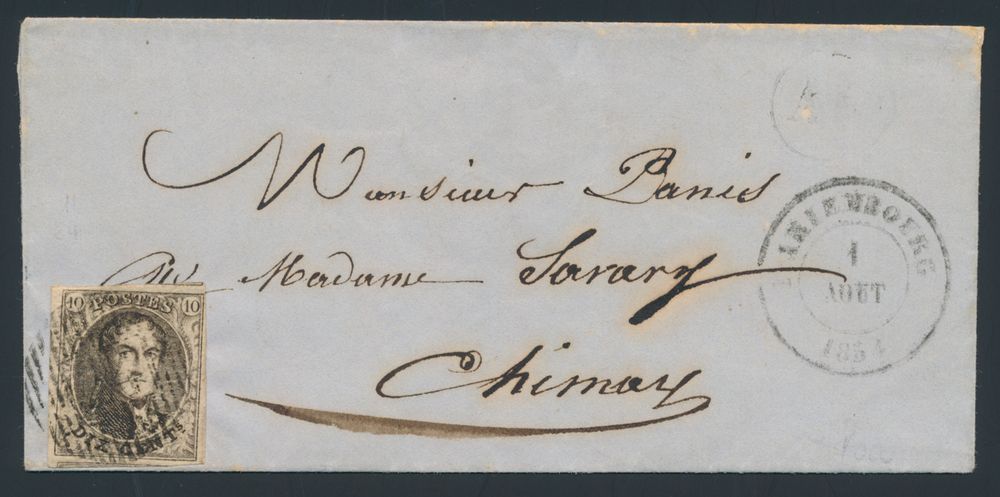 Monsieur Danis
Madame Savary
Chimay
10 POSTES 10
DIX CENTS
1
AOUT
1854